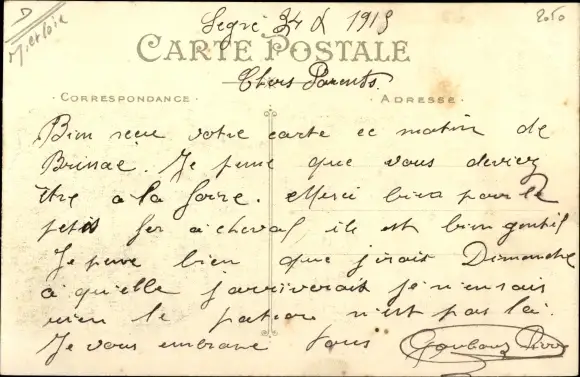 D
M. et Loire
2050
Segré 24 X 1915
CARTE POSTALE
Chers Parents.
CORRESPONDANCE
ADRESSE
Bien reçu votre carte ce matin de
Brissac. Je pense que vous deviez
être a la foire. Merci bien pour le
petit fer a cheval il est bien gentil
Je pense bien que j'irais Dimanche
à qu'elle j'arriverait je n'en sais
rien le patron n'est pas là.
Je vous embrasse tous